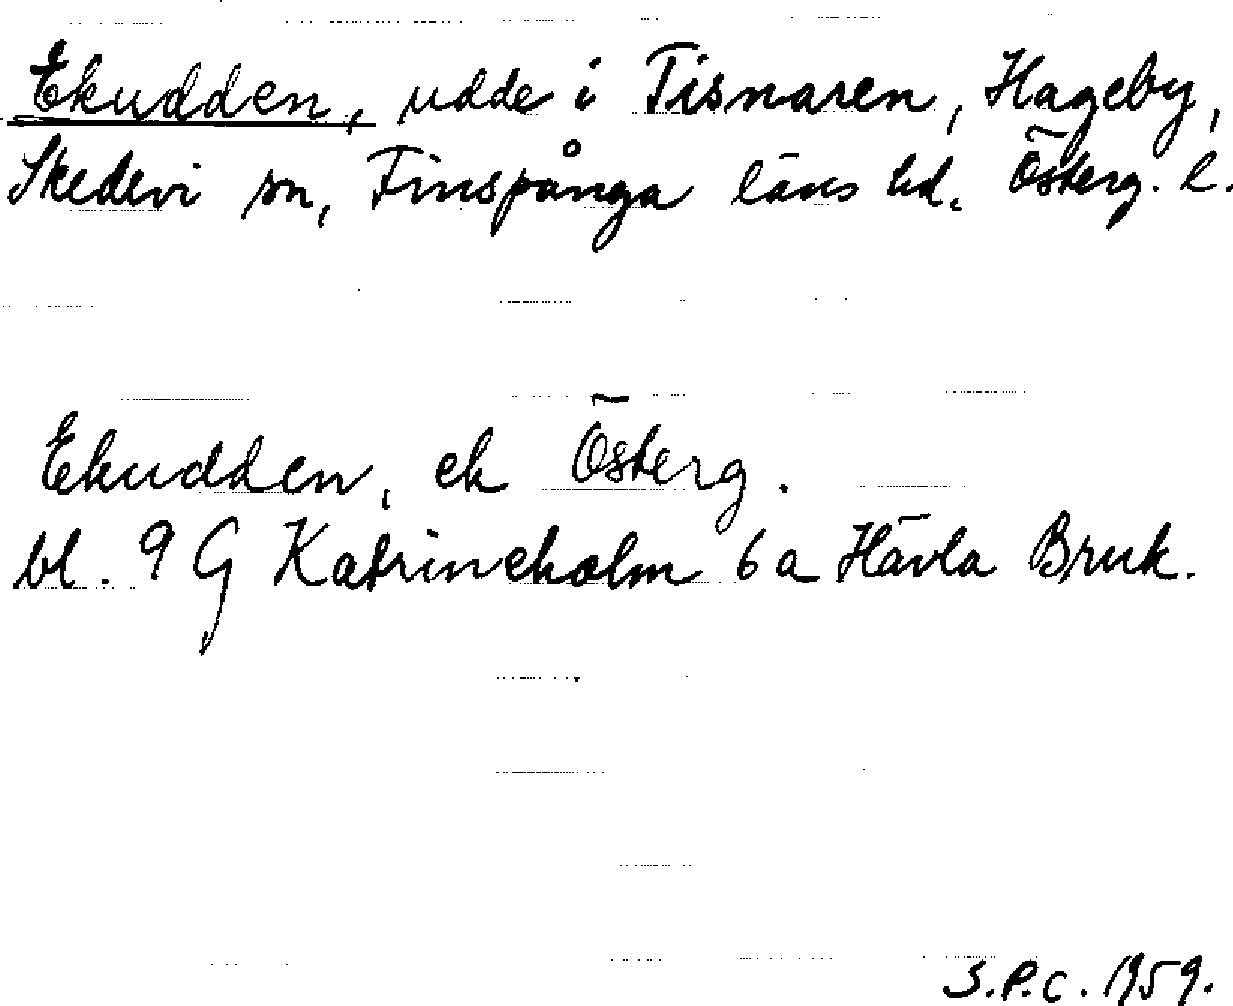 Ekudden, udde i Tisnaren, Hageby,
Skedevi sn, Finspånga läns hd. Österg. l.
Ekudden, ek Österg.
bl. 9 G Katrineholm 6 a Hävla Bruk.
S.P.C. 1959.